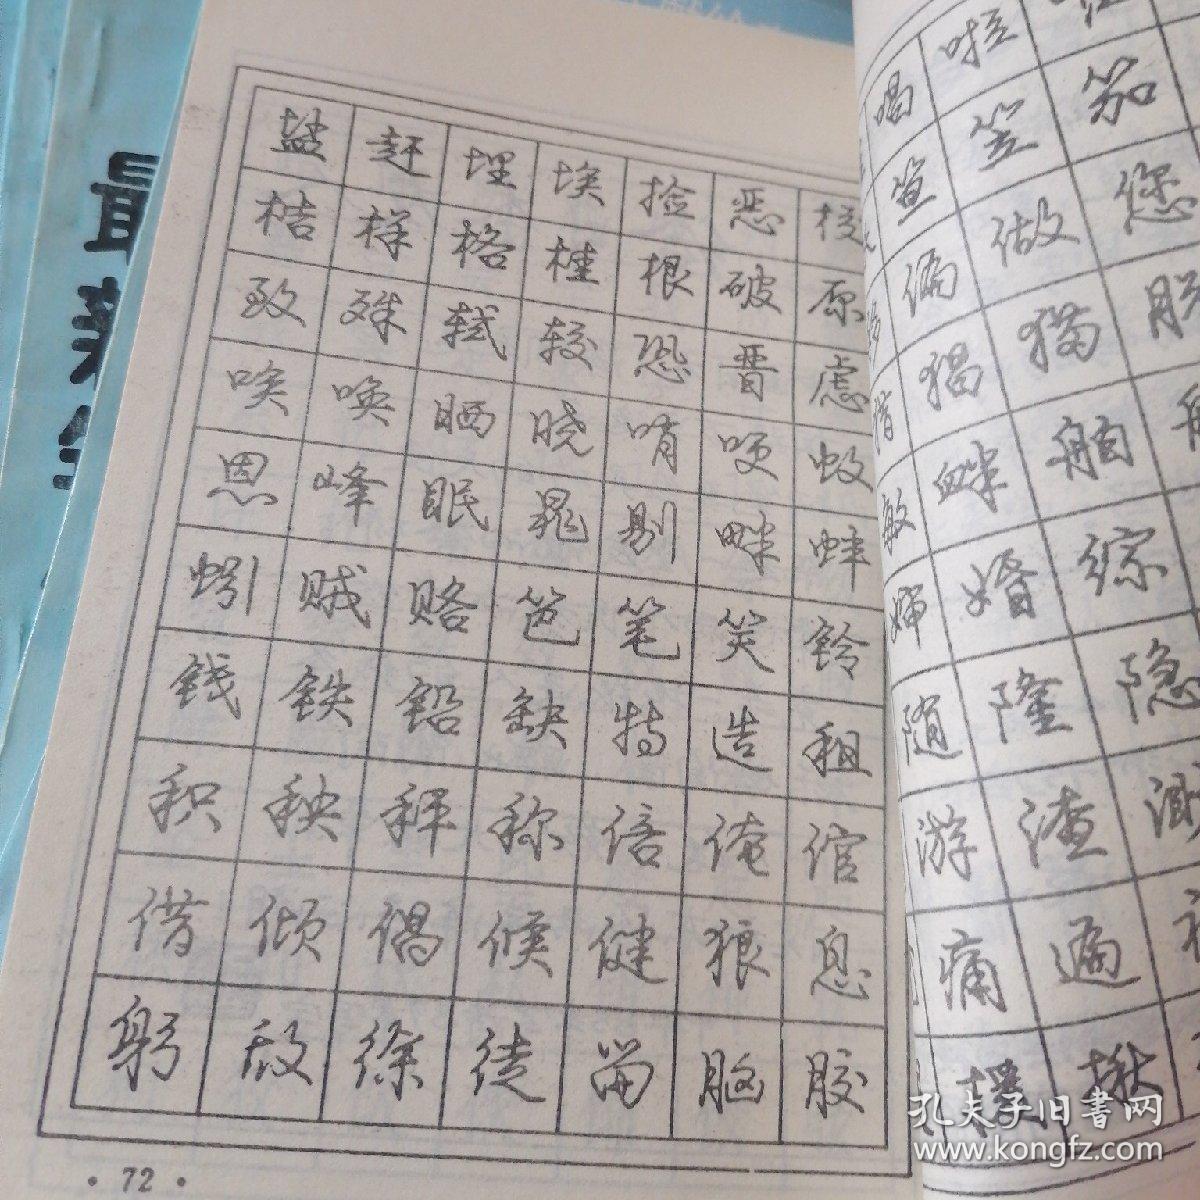 盐 赶 埋 埃 捡 恶 校
桔 样 格 桂 根 破 原
致 殊 轼 较 恐 晋 虑
唉 唤 晒 晓 哨 哽 蚊
恩 峰 眠 晃 剔 畔 蚌
蚓 贼 赂 笆 笔 笑 铃
钱 铁 铅 缺 特 造 租
积 秧 秤 称 倍 俺 倌
借 倾 偶 候 健 狼 息
躬 敌 徐 徒 留 脑 胶
·72·
唱 啦
笠 笳
偏 做 您
猖 猫 脱
敏 盛 舶
婶 婚 综
随 隆 隐
游 渣
痛 遍
揪
最
孔夫子旧书网
www.kongfz.com